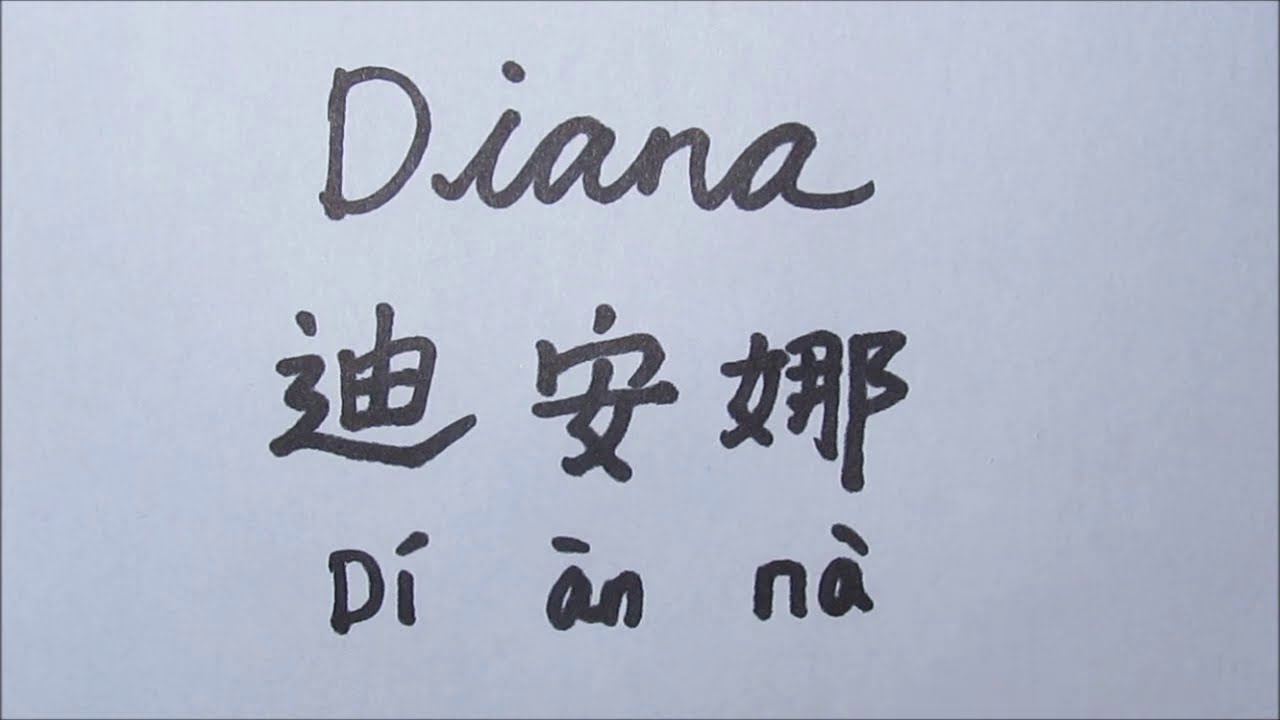 Diana
迪安娜
Dí ān nà